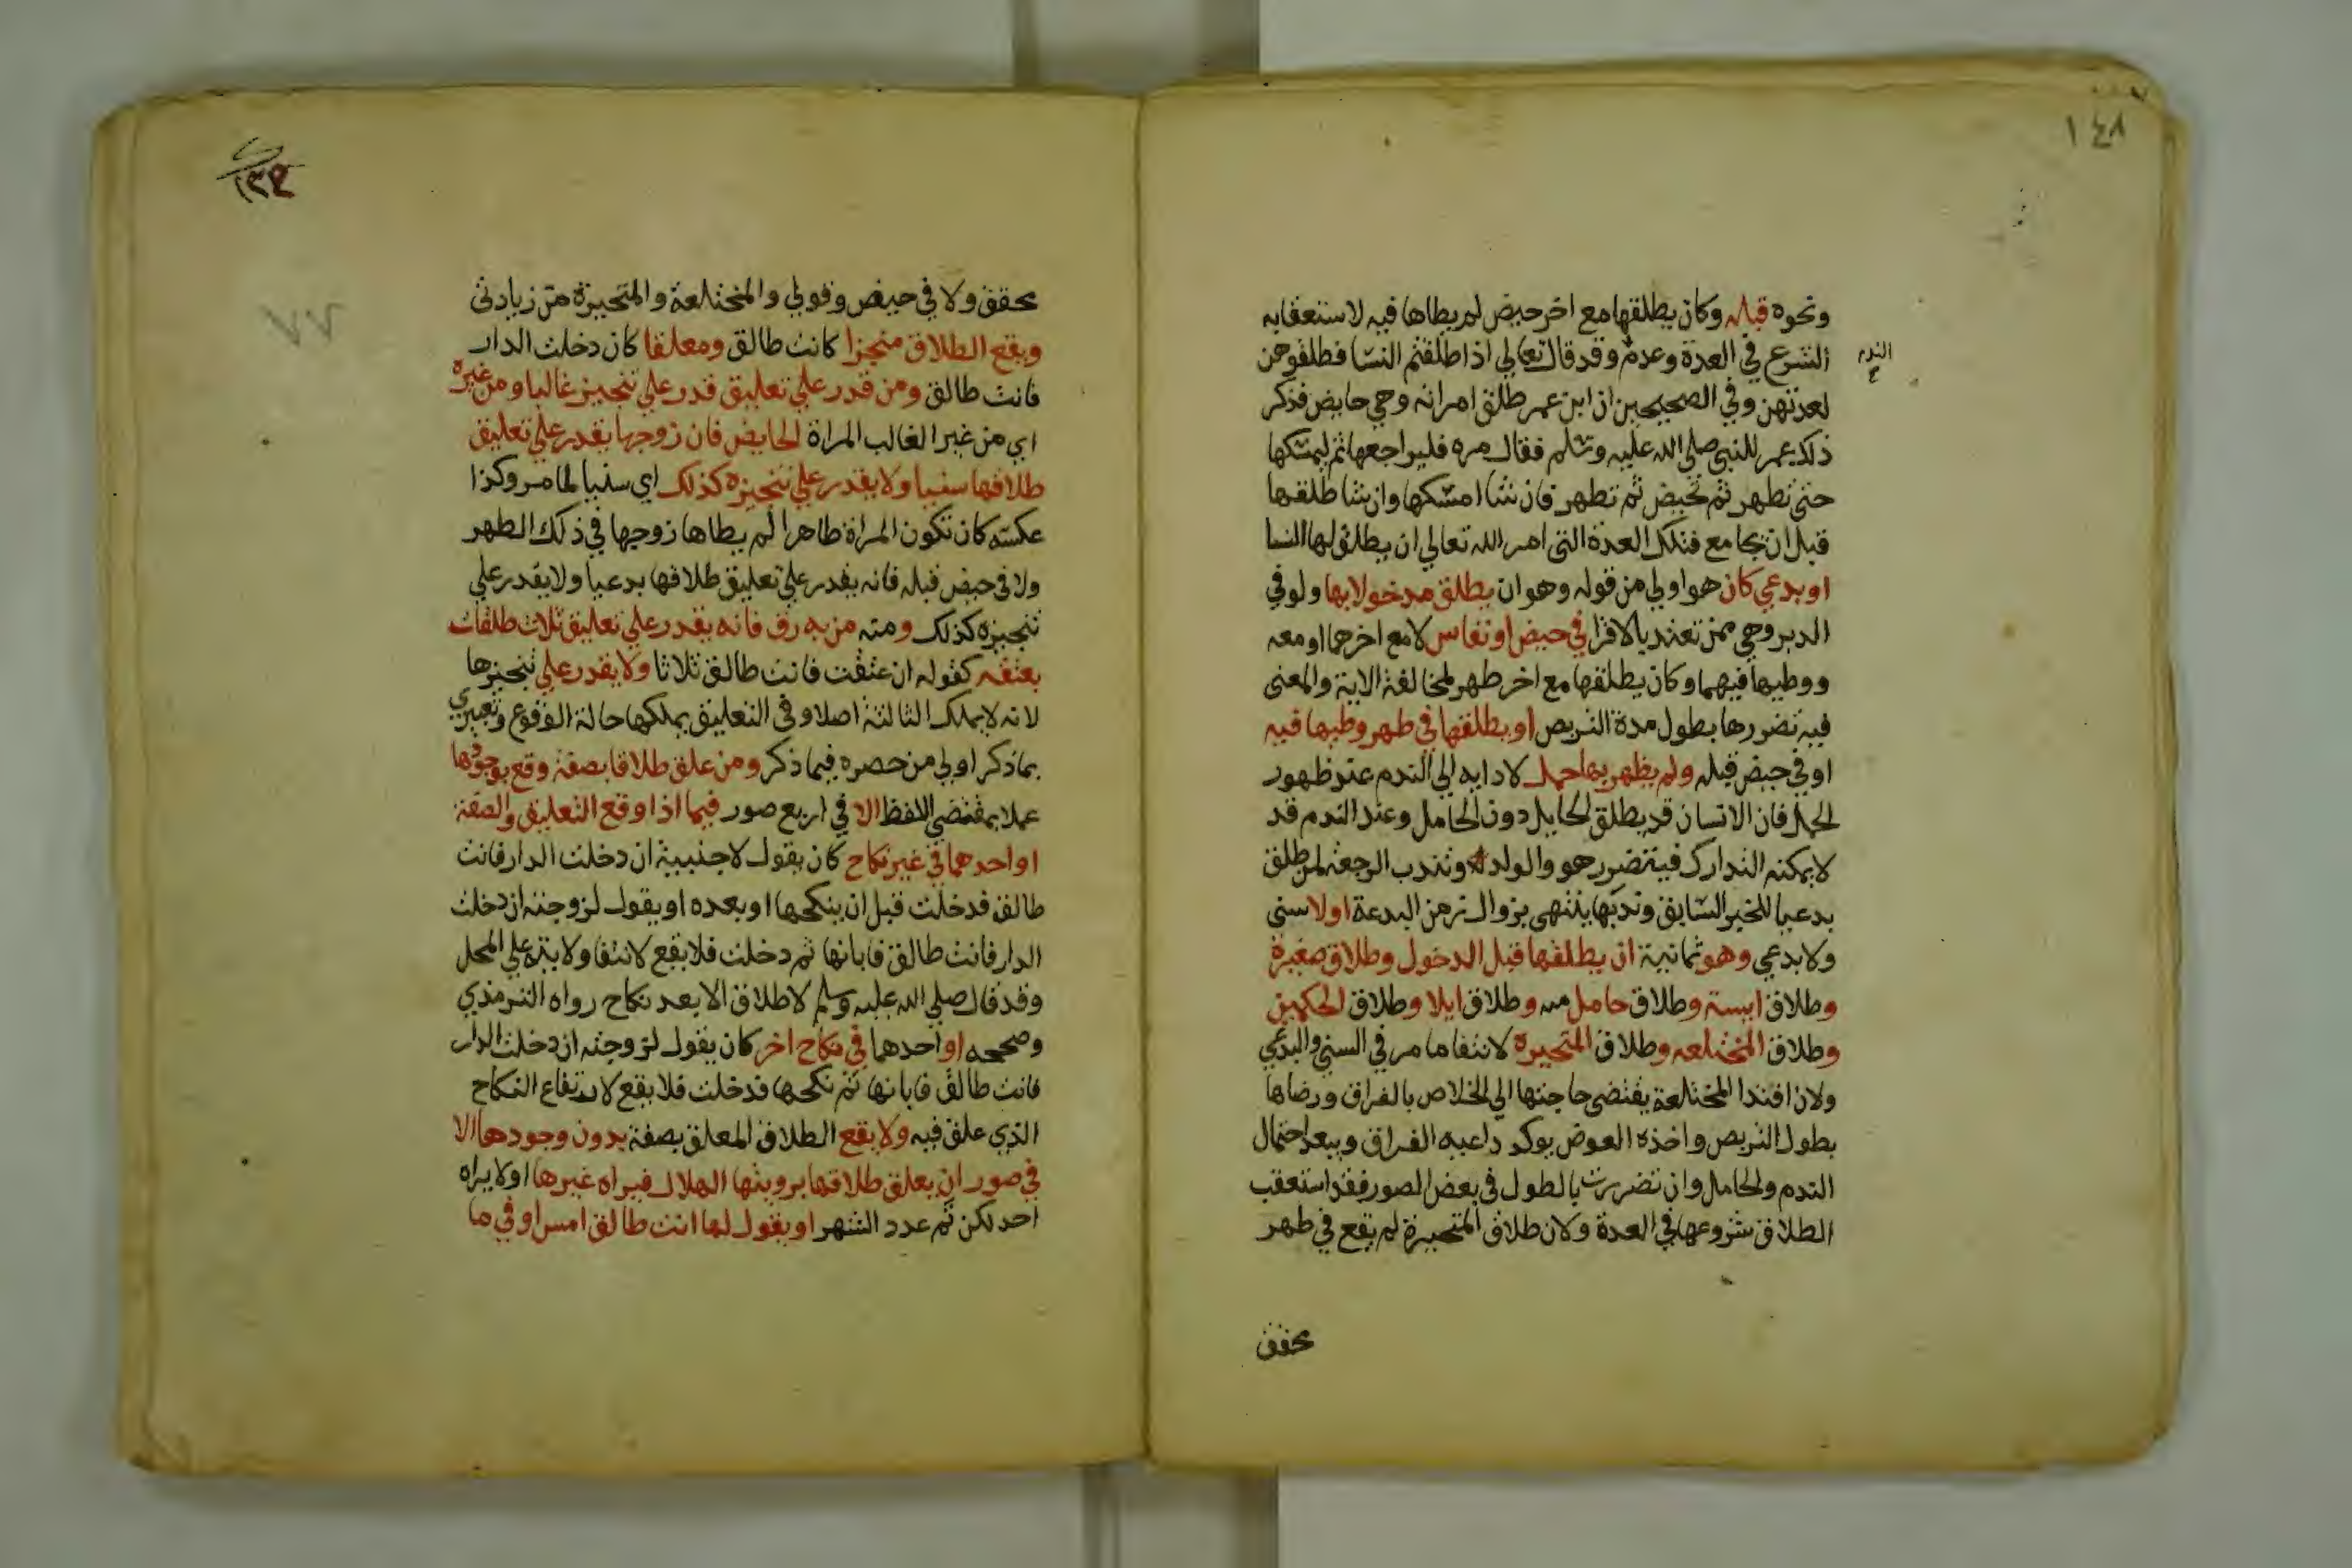 ١٤٨
ونحوه قبله وكان يطلقها مع اخر حيض لم يطاها فيه لاستعقابه
الشرع في العدة وعدم وقد قال تعالي اذا طلقتم النسا فطلقوهن
الندم
لعدتهن وفي الصحيحين ان ابن عمر طلق امراته وهي حايض فذكر
ذلك عمر للنبي صلي الله عليه وسلم فقال مره فليراجعها ثم ليمسكها
حتي تطهر ثم تحيض ثم تطهر فان شا امسكها وان شا طلقها
قبل ان يجامع فتلك العدة التي امر الله تعالي ان يطلق لها النسا
او بدعي كان هو اولي من قوله وهو ان يطلق مدخولا بها ولو في
الدبر وهي ممن تعتد بالاقرا في حيض او نفاس لا مع اخرهما او معه
ووطيها فيهما وكان يطلقها مع اخر طهر لمخالفة الاية والمعني
فيه تضررها بطول مدة التربص او يطلقها في طهر وطيها فيه
او في حيض قبله ولم يظهر بها حمل لادايه الي الندم عند ظهور
الحمل فان الانسان قد يطلق الحايل دون الحامل وعند الندم قد
لا يمكنه التدارك فيتضرر هو والولد وتندب الرجعة لمن طلق
بدعيا للخبر السابق وندبها ينتهي بزوال زمن البدعة او لا سني
ولا بدعي وهو ثمانية ان يطلقها قبل الدخول وطلاق صغيرة
وطلاق ايسة وطلاق حامل منه وطلاق ايلا وطلاق الحكمين
وطلاق المختلعه وطلاق المتحيرة لانتفا ما مر في السني والبدعي
ولان افتدا المختلعة يقتضي حاجتها الي الخلاص بالفراق ورضاها
بطول التربص واخذه العوض يوكد داعيه الفراق ويبعد احتمال
الندم والحامل وان تضررت بالطول في بعض الصور فقد استعقب
الطلاق شروعها في العدة ولان طلاق المتحيرة لم يقع في طهر
محقق
محقق ولا في حيض وقولي والمختلعة والمتحيرة من زيادتي
ويقع الطلاق منجزا كانت طالق ومعلقا كان دخلت الدار
فانت طالق ومن قدر علي تعليق قدر علي تنجيز غالبا ومن غيره
اي من غير الغالب المراة الحايض فان زوجها يقدر علي تعليق
طلاقها سنيا ولا يقدر علي تنجيزه كذلك اي سنيا لما مر وكذا
عكسه كان تكون المراة طاهرا لم يطاها زوجها في ذلك الطهر
ولا في حيض قبله فانه يقدر علي تعليق طلاقها بدعيا ولا يقدر علي
تنجيزه كذلك ومنه من به رق فانه يقدر علي تعليق ثلاث طلقات
بعتقه كقوله ان عتقت فانت طالق ثلاثا ولا يقدر علي تنجيزها
لانه لا يملك الثالثة اصلا وفي التعليق يملكها حالة الوقوع وتعبيري
بما ذكر اولي من حصره فيما ذكر ومن علق طلاقا بصفة وقع بوجودها
عملا بمقتضي اللفظ الا في اربع صور فيما اذا وقع التعليق والصفة
او احدهما في غير نكاح كان يقول لاجنبية ان دخلت الدار فانت
طالق فدخلت قبل ان ينكحها او بعده او يقول لزوجته ان دخلت
الدار فانت طالق فابانها ثم دخلت فلا يقع لانتفا ولايته علي المحل
وقد قال صلي الله عليه وسلم لا طلاق الا بعد نكاح رواه الترمذي
وصححه او احدهما في نكاح اخر كان يقول لزوجته ان دخلت الدار
فانت طالق فابانها ثم نكحها فدخلت فلا يقع لارتفاع النكاح
الذي علق فيه ولا يقع الطلاق المعلق بصفة بدون وجودها الا
في صور ان يعلق طلاقها برويتها الهلال فيراه غيرها او لا يراه
احد لكن تم عدد الشهر او يقول لها انت طالق امس او في ما